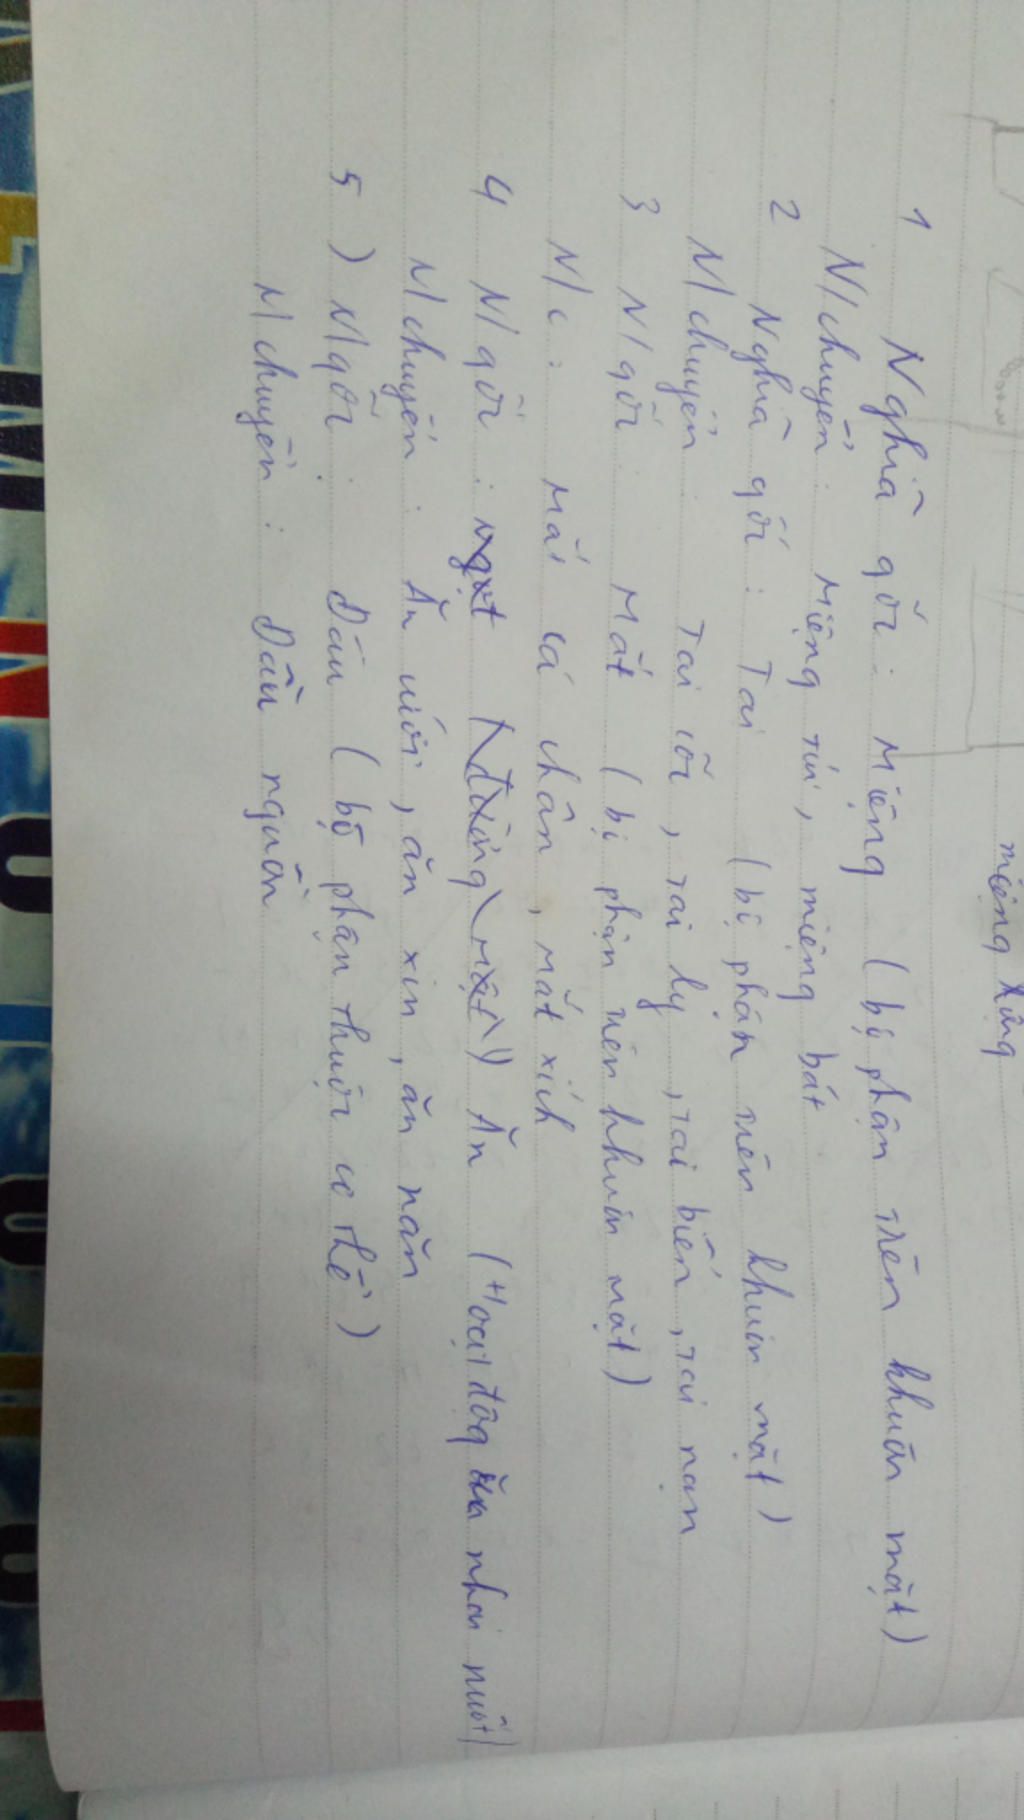 miệng
1 Nghĩa gốc: Miệng (bộ phận trên khuôn mặt)
N/chuyển: Miệng túi, miệng bát
2 Nghĩa gốc: Tai (bộ phận trên khuôn mặt)
N/chuyển: Tai cối, tai ly, tai biến, tai nạn
3 N/gốc: Mắt (bộ phận trên khuôn mặt)
N/c: Mắt cá chân, mắt xích
4 N/gốc: Ăn (Hoạt động nhai nuốt)
N/chuyển: Ăn cưới, ăn xin, ăn năn
5) N/gốc: Đầu (bộ phận thuộc cơ thể)
N/chuyển: Đầu nguồn